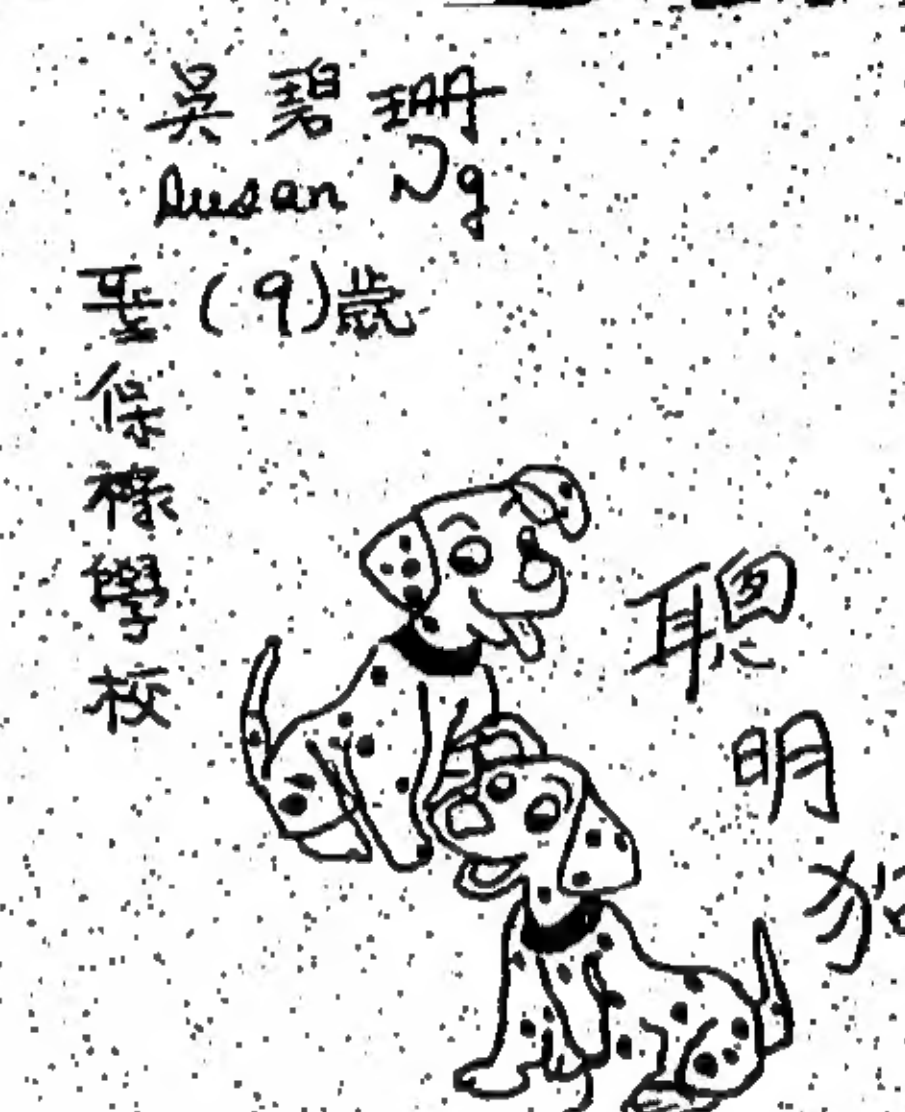 吳碧珊
Susan Ng
(9)歲
聖保祿學校
聰明狗